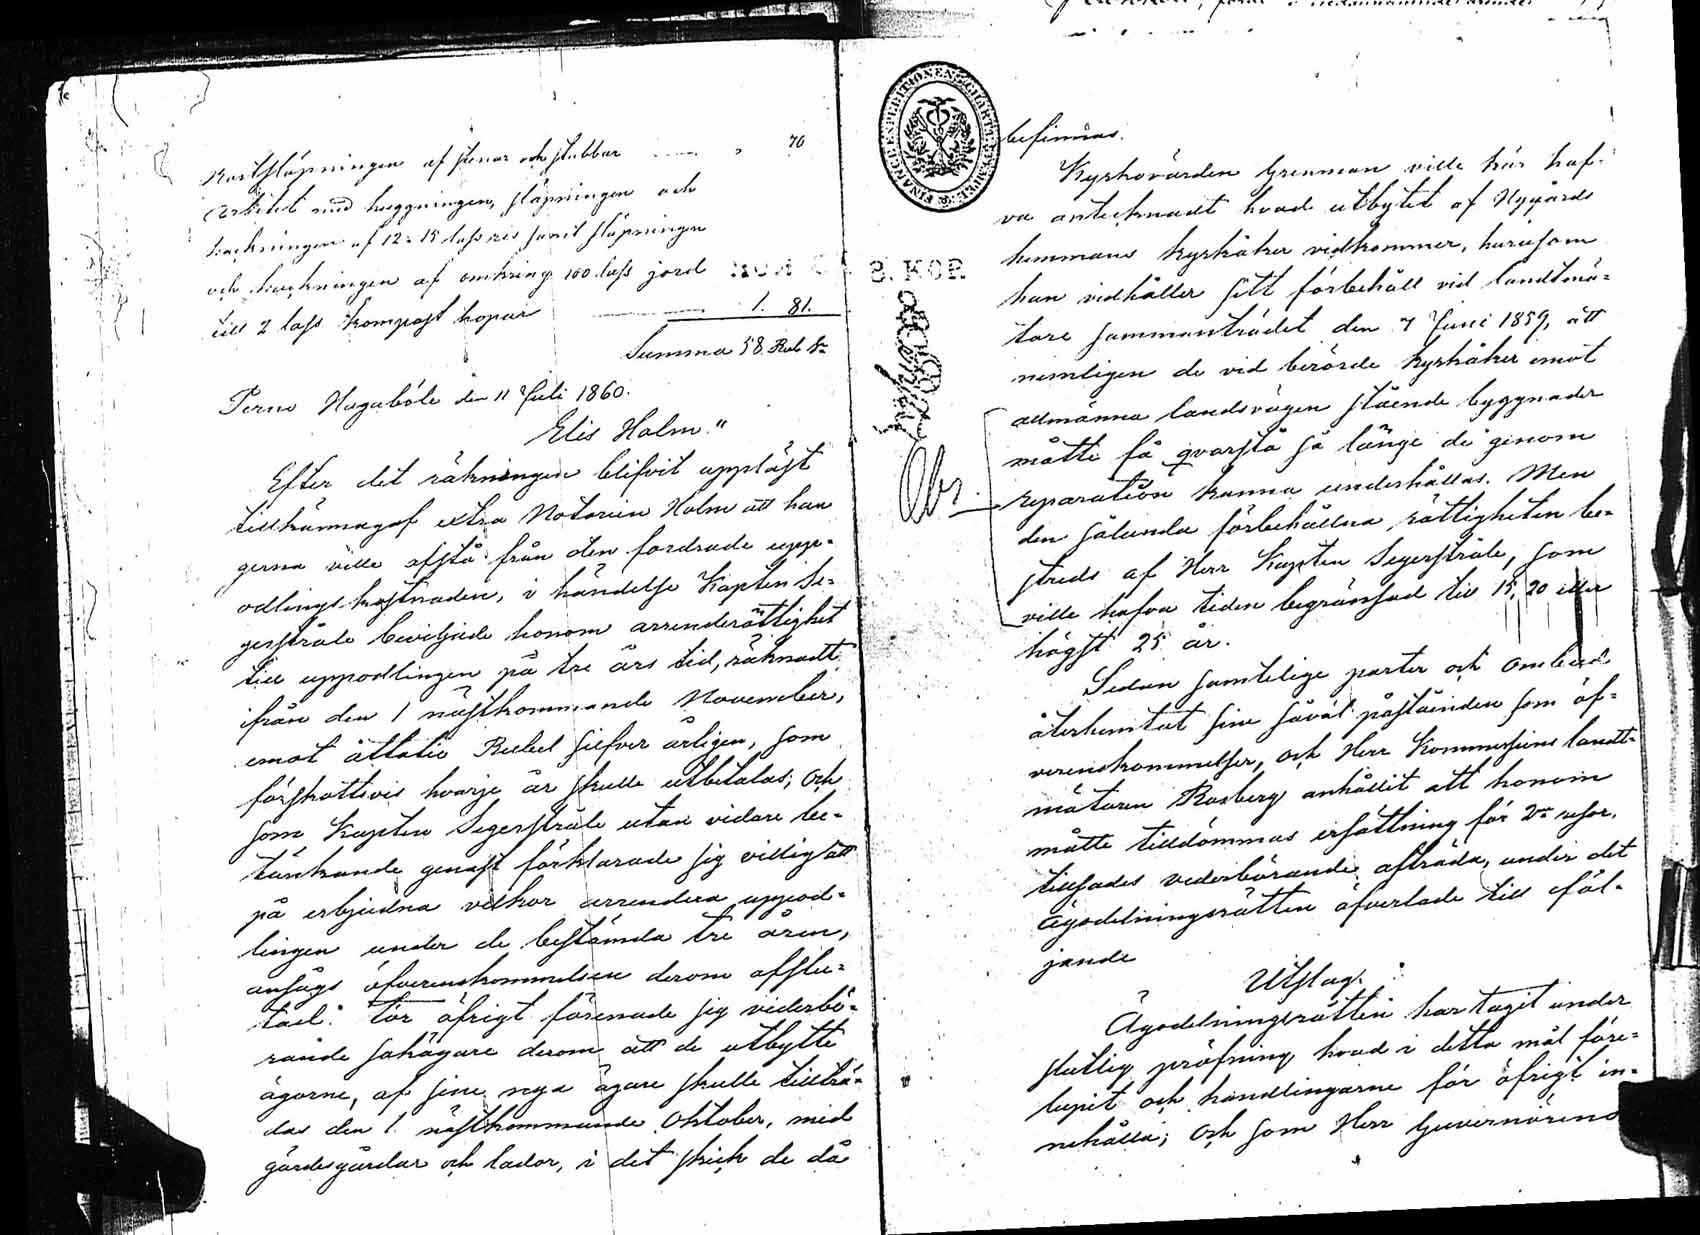 Bortsläpningen af stenar och stubbar " 70
Arbetet med huggningen, släpningen och
hackningen af 12 a 15 lass ris samt släpningen
och hackningen af omkring 100 lass jord
till 2 lass kompost hopar 1. 81.
Summa 58 Rub. Sr
Perno Hagaböle den 11 Juli 1860.
Elis Holm."
Efter det räkningen blifvit uppläst
tillkännagaf extra Notarien Holm att han
gerna ville afstå från den fordrade upp-
odlings kostnaden, i händelse Kapten Se-
gerstråle beviljade honom arrenderättighet
till uppodlingen på tre års tid, räknadt
ifrån den 1 nästkommande November,
emot åttatio Rubel silfver årligen, som
förskottsvis hvarje år skulle utbetalas; och
som Kapten Segerstråle utan vidare be-
tänkande genast förklarade sig villig att
på erbjudna vilkor arrendera uppod-
lingen under de bestämda tre åren,
ansågs öfverenskommelsen derom afslu-
tad. För öfrigt förenade sig vederbö-
rande sakägare derom att de utbytte
ägorne, af sine nya ägare skulle tillträ-
das den 1 nästkommande Oktober, med
gärdesgårdar och lador, i det skick de då
FINANCE EXPEDITIONEN CHARTÆ STEMPEL
S. KOP.
Obs.
befinnas.
Kyrkovärden Grenman ville här haf-
va antecknadt hvad utbytet af Nygårds
hemmans Kyrkåker vidkommer, hurusom
han vidhåller sitt förbehåll vid landtmä-
tare sammanträdet den 7 Juni 1859, att
nemligen de vid berörde Kyrkåker emot
allmänna landsvägen stående byggnader
måtte få qvarstå så länge de genom
reparation kunna underhållas. Men
den sålunda förbehållna rättigheten be-
streds af Herr Kapten Segerstråle, som
ville hafva tiden begränsad till 15, 20 eller
högst 25 år.
Sedan samtelige parter och ombud
återhemtat sine såväl påståenden som öf-
verenskommelser, och Herr Kommissions landt-
mätaren Rosberg anhållit att honom
måtte tilldömmas ersättning för 2ne resor,
tillsades vederbörande afträda, under det
Ägodelningsrätten öfverlade till föl-
jande
Utslag:
Ägodelningsrätten har tagit under
slutlig pröfning hvad i detta mål före-
lupit och handlingarne för öfrigt in-
nehålla; och som Herr Guvernörens